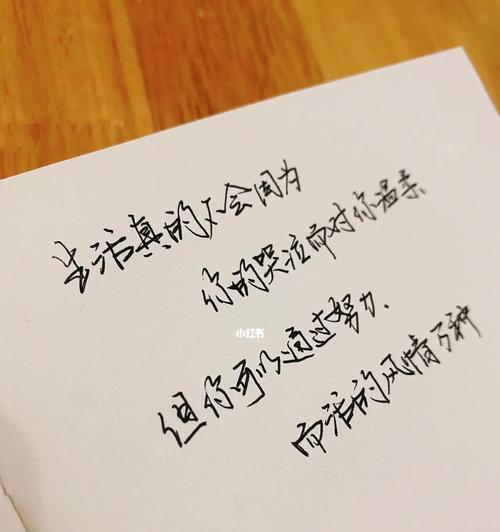 生活真的不会因为
你的哭泣而对你温柔
小红书
但你可以通过努力.
而活的风情万种